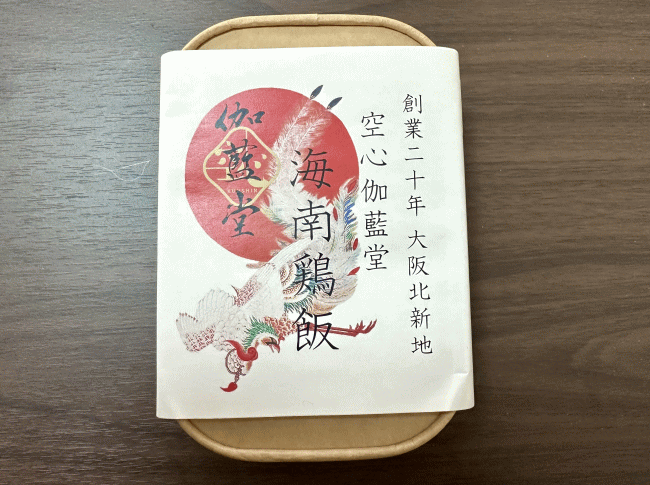 創業二十年 大阪北新地
空心伽藍堂
海南鶏飯
伽藍堂